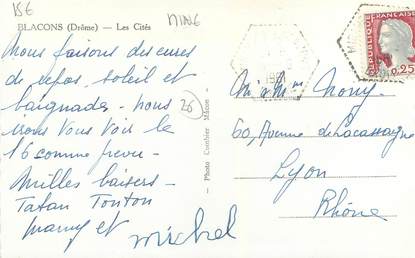 15€
MINE
BLACONS (Drôme) — Les Cités
Nous faisons des cures
de repos soleil et
baignades - nous
irons vous voir le
16 comme prévu -
milles baisers -
Tatan Tonton
mamy et
michel
26
Photo Combier Mâcon
REPUBLIQUE FRANÇAISE
0,25
M. & Mme Nony.
60, Avenue de Lacassagne
Lyon
Rhône